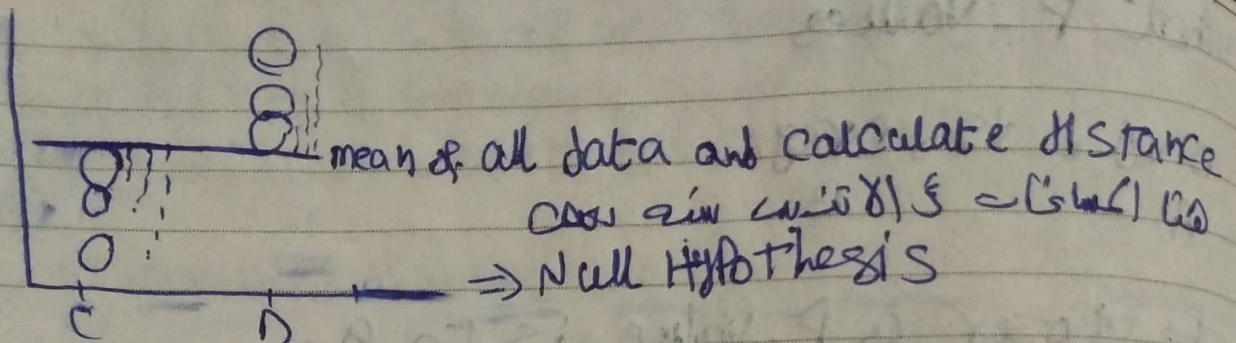 mean of all data and calculate distance
Null Hypothesis
C D